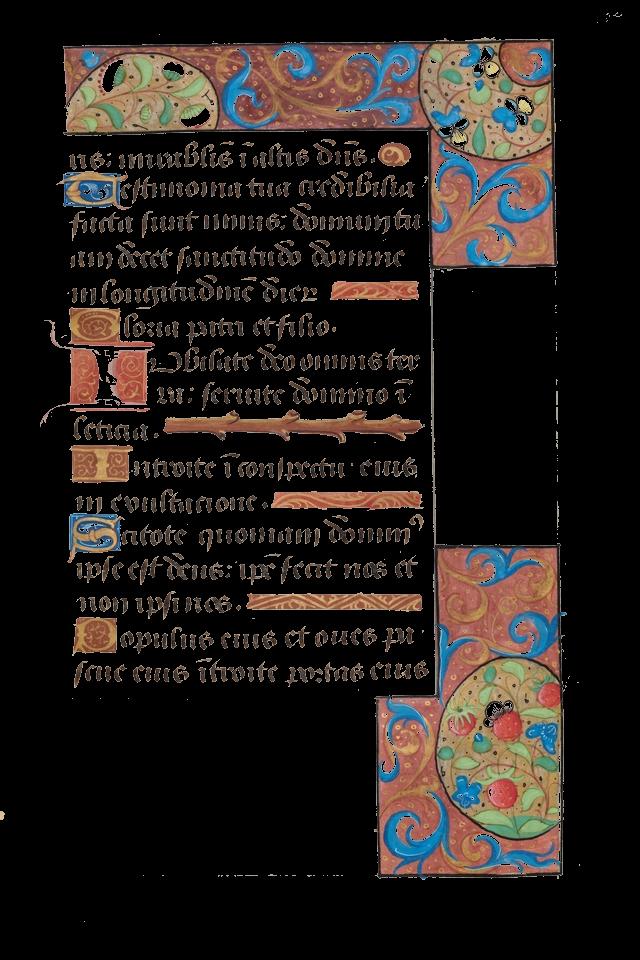 us: mirablis ī altis dn̄s.
Testimonia tua credibilia
facta sunt nimis: domum tu
am decet sanctitudo domine
in longitudinē dier
Gloria patri et filio.
IVbilate deo omnis ter
ra: seruite domino ī
leticia.
Introite ī conspectu eius
in exultacione.
Scitote quoniam domin⁹
ipse est deus: ip̄e fecit nos et
non ipsi nos.
Populus eius et oues pa
scue eius ītroite portas eius